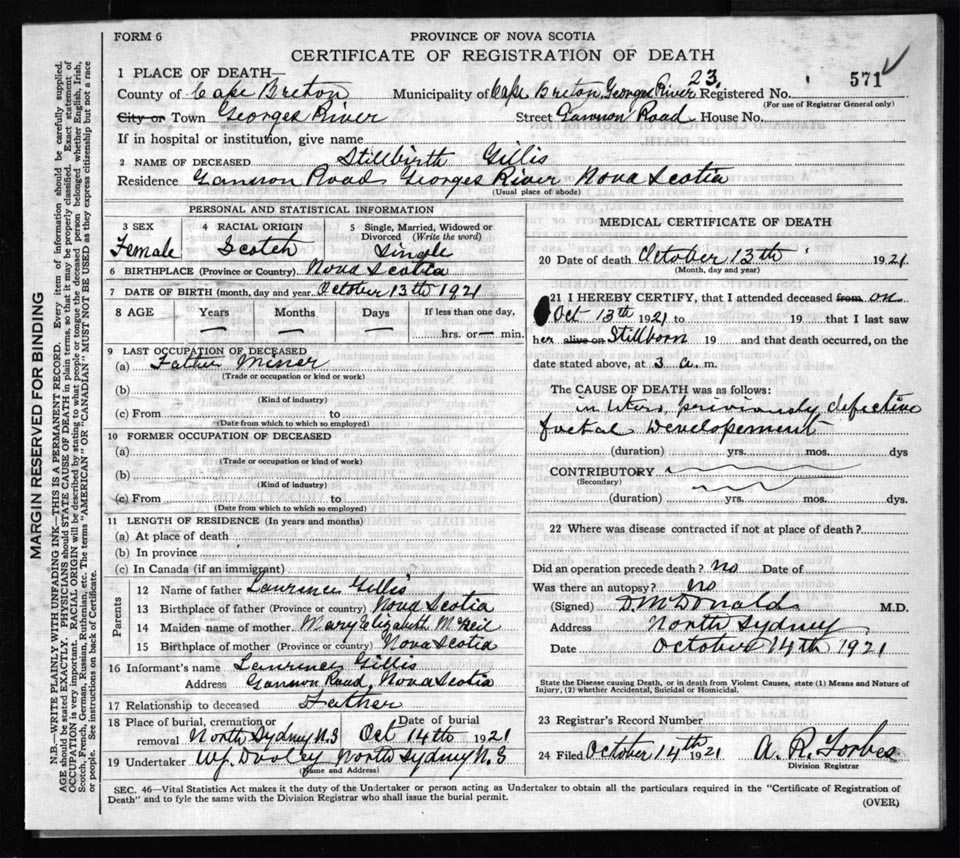 FORM 6
PROVINCE OF NOVA SCOTIA
CERTIFICATE OF REGISTRATION OF DEATH
1 PLACE OF DEATH— 23 571
County of Cape Breton Municipality of Cape Breton, Georges River Registered No.
(For use of Registrar General only)
City or Town Georges River Street Gannon Road House No.
If in hospital or institution, give name
2 NAME OF DECEASED Stillbirth Gillis
Residence Gannon Road Georges River Nova Scotia
(Usual place of abode)
PERSONAL AND STATISTICAL INFORMATION
3 SEX Female
4 RACIAL ORIGIN Scotch
5 Single, Married, Widowed or Divorced (Write the word) Single
6 BIRTHPLACE (Province or Country) Nova Scotia
7 DATE OF BIRTH (month, day and year) October 13th 1921
8 AGE Years Months Days If less than one day,
— — — hrs. or — min.
9 LAST OCCUPATION OF DECEASED
(a) Father Miner
(Trade or occupation or kind or work)
(b)
(Kind of industry)
(c) From to
(Date from which to which so employed)
10 FORMER OCCUPATION OF DECEASED
(a)
(Trade or occupation or kind of work)
(b)
(Kind of industry)
(c) From to
(Date from which to which so employed)
11 LENGTH OF RESIDENCE (In years and months)
(a) At place of death
(b) In province
(c) In Canada (if an immigrant)
Parents
12 Name of father Laurence Gillis
13 Birthplace of father (Province or country) Nova Scotia
14 Maiden name of mother Mary Elizabeth McNeil
15 Birthplace of mother (Province or country) Nova Scotia
16 Informant's name Laurence Gillis
Address Gannon Road, Nova Scotia
17 Relationship to deceased Father
18 Place of burial, cremation or removal North Sydney N.S Date of burial Oct 14th 1921
19 Undertaker W.J. Dooley North Sydney N.S
(Name and Address)
MEDICAL CERTIFICATE OF DEATH
20 Date of death October 13th 1921
(Month, day and year)
21 I HEREBY CERTIFY, that I attended deceased from on
Oct 13th 1921 to 19 that I last saw
her alive on Stillborn 19 and that death occurred, on the
date stated above, at 3 a. m.
The CAUSE OF DEATH was as follows:
in utero, previously defective
foetal developement
(duration) yrs. mos. dys
CONTRIBUTORY
(Secondary)
(duration) yrs. mos. dys.
22 Where was disease contracted if not at place of death?
Did an operation precede death? no Date of
Was there an autopsy? no
(Signed) D McDonald M.D.
Address North Sydney
Date October 14th 1921
State the Disease causing Death, or in death from Violent Causes, state (1) Means and Nature of
Injury, (2) whether Accidental, Suicidal or Homicidal.
23 Registrar's Record Number
24 Filed October 14th 1921 A. R. Forbes
Division Registrar
SEC. 46—Vital Statistics Act makes it the duty of the Undertaker or person acting as Undertaker to obtain all the particulars required in the "Certificate of Registration of
Death" and to fyle the same with the Division Registrar who shall issue the burial permit.
(OVER)
MARGIN RESERVED FOR BINDING
N.B.—WRITE PLAINLY WITH UNFADING INK—THIS IS A PERMANENT RECORD. Every item of information should be carefully supplied.
AGE should be stated EXACTLY. PHYSICIANS should STATE CAUSE OF DEATH in plain terms, so that it may be properly classified. Exact statement of
OCCUPATION is very important. RACIAL ORIGIN will be described by stating to what people or tongue the deceased person belonged whether English, Irish,
Scotch, French, German, Russian, Ruthenian, etc. The terms "AMERICAN" OR "CANADIAN" MUST NOT BE USED as they express citizenship but not a race
or people. See instructions on back of Certificate.